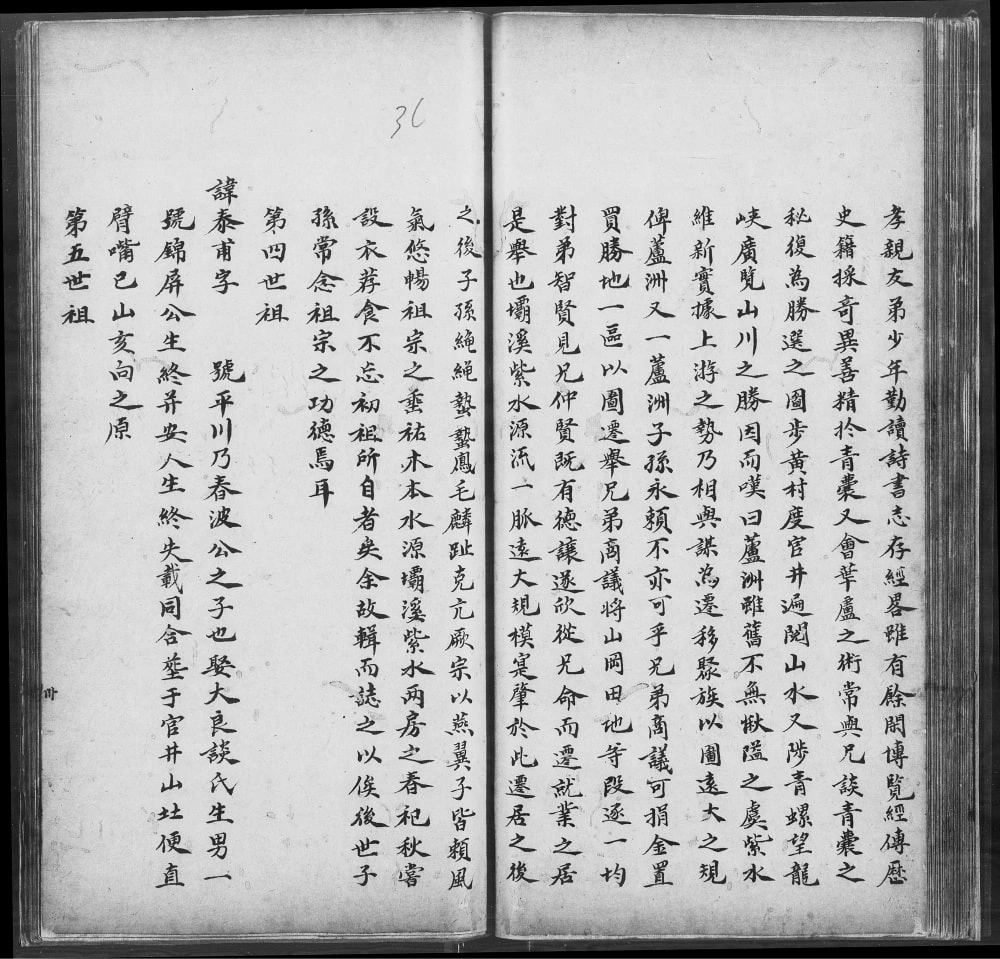 孝親友弟少年勤讀詩書志存經畧雖有餘閑博覽經傳歷
史籍採奇異善精於青囊又會華盧之術常與兄談青囊之
秘復為勝選之圖步黃村度官井遍閱山水又陟青螺望龍
峽廣覽山川之勝因而嘆曰蘆洲雖舊不無湫隘之虞紫水
維新實據上游之勢乃相與謀為遷移聚族以圖遠大之規
俾蘆洲又一蘆洲子孫永賴不亦可乎兄弟商議可捐金置
買勝地一區以圖遷舉兄弟商議將山岡田地等段逐一均
對弟智賢見兄仲賢既有德讓遂欣從兄命而遷就業之居
是舉也壩溪紫水源流一脈遠大規模寔肇於此遷居之後
之後子孫繩繩蟄蟄鳳毛麟趾克亢厥宗以燕翼子皆賴風
氣悠暢祖宗之垂祐木本水源壩溪紫水两房之春祀秋嘗
設衣荐食不忘初祖所自者矣余故輯而誌之以俟後世子
孫常念祖宗之功德焉耳
第四世祖
諱泰甫字 號平川乃春波公之子也娶大良談氏生男一
號錦屏公生終并安人生終失載同合塟于官井山土便直
臂嘴巳山亥向之原
第五世祖
36
卌